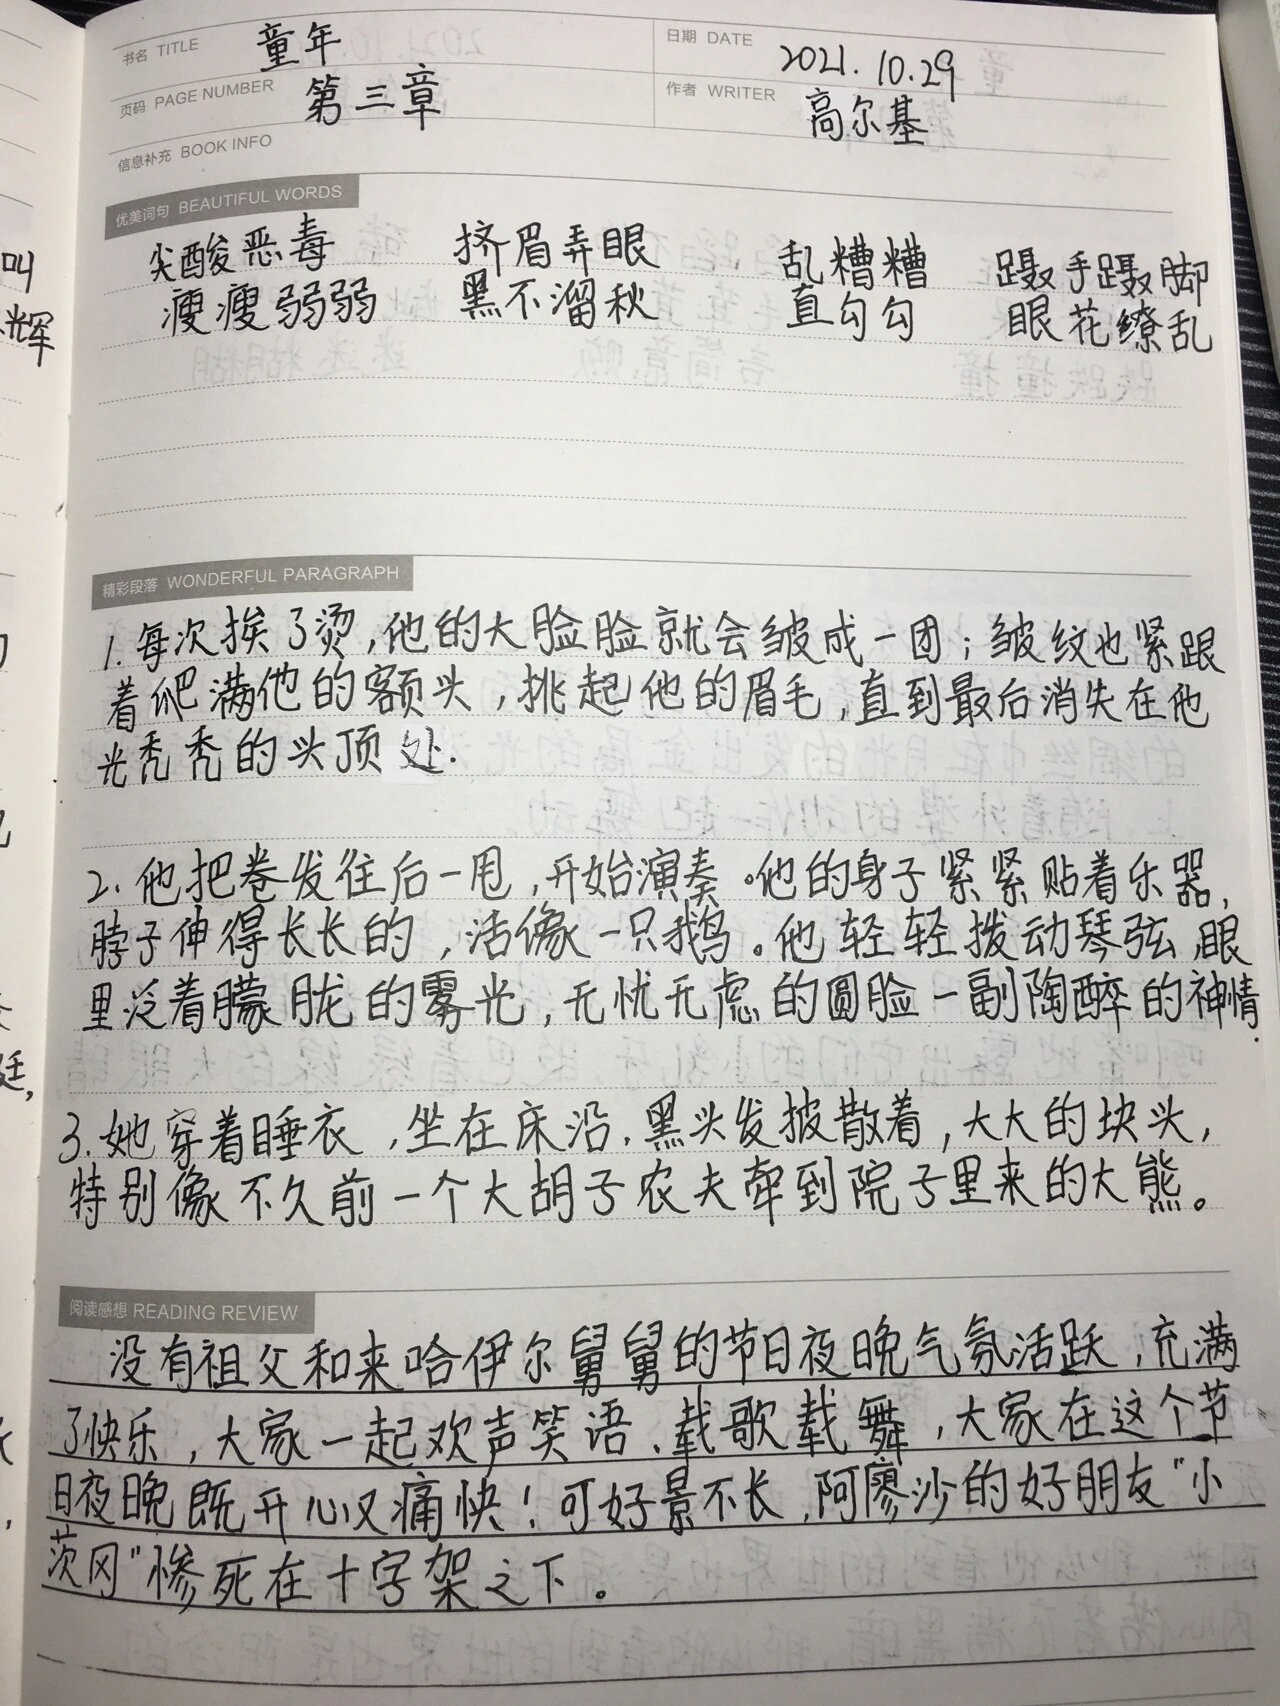 书名 TITLE 童年 日期 DATE 2021.10.29
页码 PAGE NUMBER 第三章 作者 WRITER 高尔基
信息补充 BOOK INFO
优美词句 BEAUTIFUL WORDS
尖酸恶毒 挤眉弄眼 乱糟糟 蹑手蹑脚
瘦瘦弱弱 黑不溜秋 直勾勾 眼花缭乱
精彩段落 WONDERFUL PARAGRAPH
1.每次挨了烫,他的大脸脸就会皱成一团;皱纹也紧跟
着爬满他的额头,挑起他的眉毛,直到最后消失在他
光秃秃的头顶处.
2.他把卷发往后一甩,开始演奏。他的身子紧紧贴着乐器,
脖子伸得长长的,活像一只鹅。他轻轻拨动琴弦,眼
里泛着朦胧的雾光,无忧无虑的圆脸一副陶醉的神情.
3.她穿着睡衣,坐在床沿.黑头发披散着,大大的块头,
特别像不久前一个大胡子农夫牵到院子里来的大熊。
阅读感想 READING REVIEW
没有祖父和来哈伊尔舅舅的节日夜晚气氛活跃,充满
了快乐,大家一起欢声笑语、载歌载舞,大家在这个节
日夜晚既开心又痛快!可好景不长,阿廖沙的好朋友"小
茨冈"惨死在十字架之下。
叫
辉
廷,